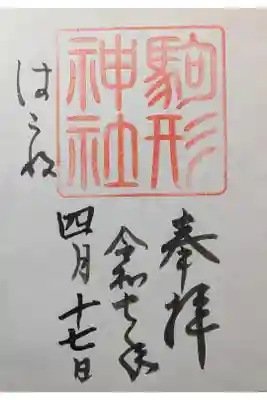 奉拝
駒形
神社
令和七年
四月十七日
はこね